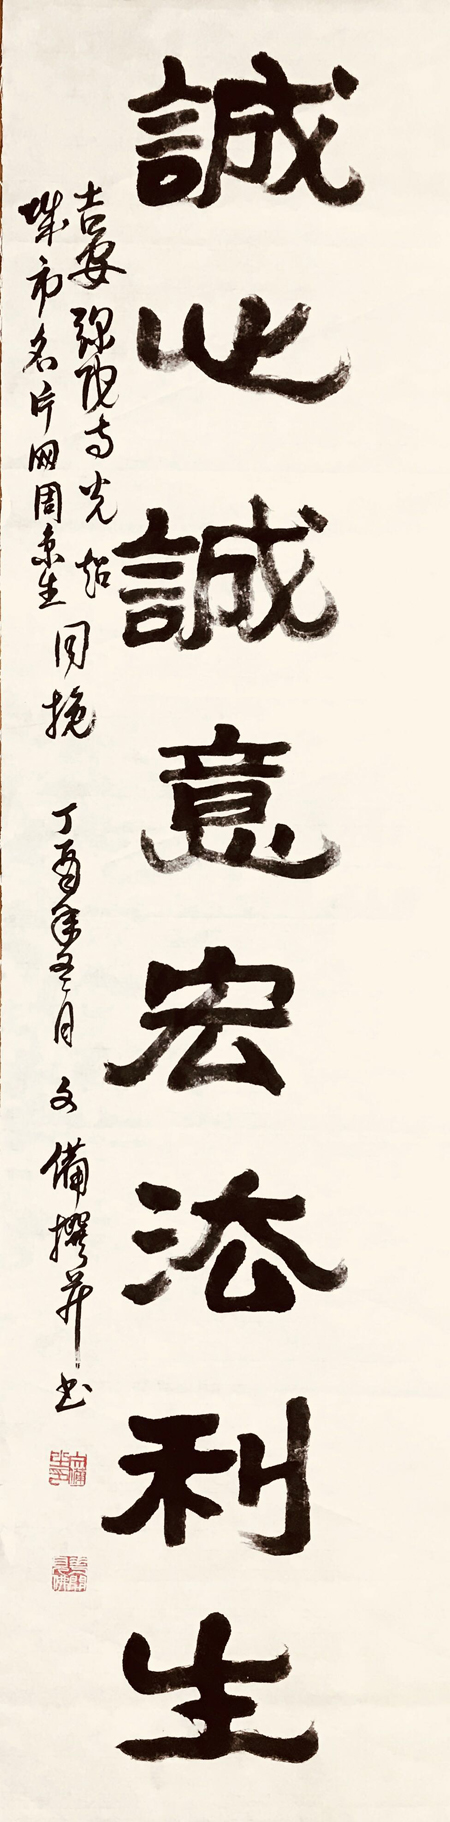 誠心誠意宏法利生
吉安弥陀寺光超
城市名片网周京生
同挽 丁酉年冬月 文備撰并书